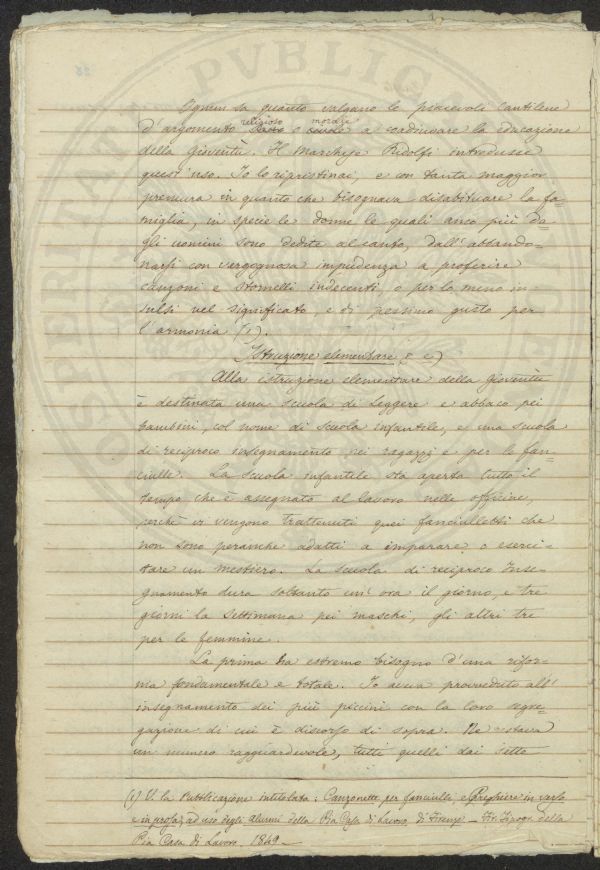 Ognun sa quanto valgano le piacevoli cantilene
religioso morale
d'argomento sacro o sociale a coadiuvare la educazione
della Gioventù. Il Marchese Ridolfi introdusse
quest'uso. Io lo ripristinai, e con tanta maggior
premura in quanto che bisognava disabituare la fa=
miglia, in specie le donne le quali anco più de=
gli uomini sono dedite al canto, dall'abbando=
narsi con vergognosa impudenza a proferire
canzoni e stornelli indecenti, o per lo meno in=
sulsi nel significato, e di pessimo gusto per
l'armonia (1).
Istruzione elementare
Alla istruzione elementare della Gioventù
è destinata una scuola di Leggere e abbaco pei
bambini, col nome di Scuola infantile, e una scuola
di reciproco insegnamento pei ragazzi e per le fan=
ciulle. La Scuola infantile sta aperta tutto il
tempo che è assegnato al lavoro nelle officine,
perchè vi vengono trattenuti quei fanciulletti che
non sono peranche adatti a imparare o eserci=
tare un mestiero. La Scuola di reciproco Inse=
gnamento dura soltanto un'ora il giorno, e tre
giorni la Settimana pei maschi, gli altri tre
per le femmine.
La prima ha estremo bisogno d'una rifor=
ma fondamentale e totale. Io aveva provveduto all'
insegnamento dei più piccini con la loro segre=
gazione di cui è discorso di sopra. Ne restava
un numero ragguardevole, tutti quelli dai sette
(1) V. la Pubblicazione intitolata: Canzonette per fanciulli e Preghiere in verso
e in prosa, ad uso degli alunni della Pia Casa di Lavoro di Firenze — Tipogr. della
Pia Casa di Lavoro. 1849 —